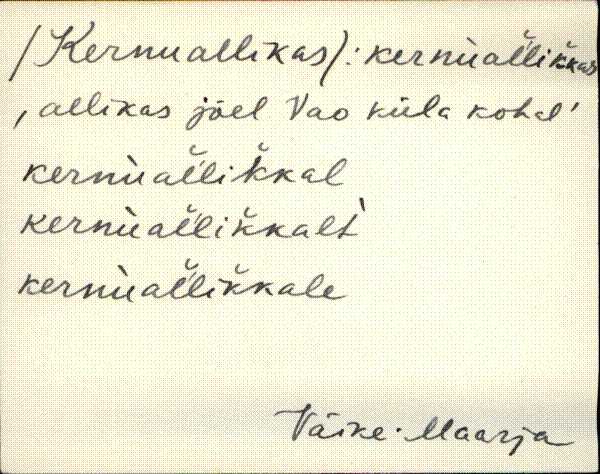 /Kernuallikas/: kernùal̆likkas
, allikas jõel Vao küla kohal'
kernùal̆likkal
kernùal̆likkalt̀
kernùal̆likkale
Väike-Maarja